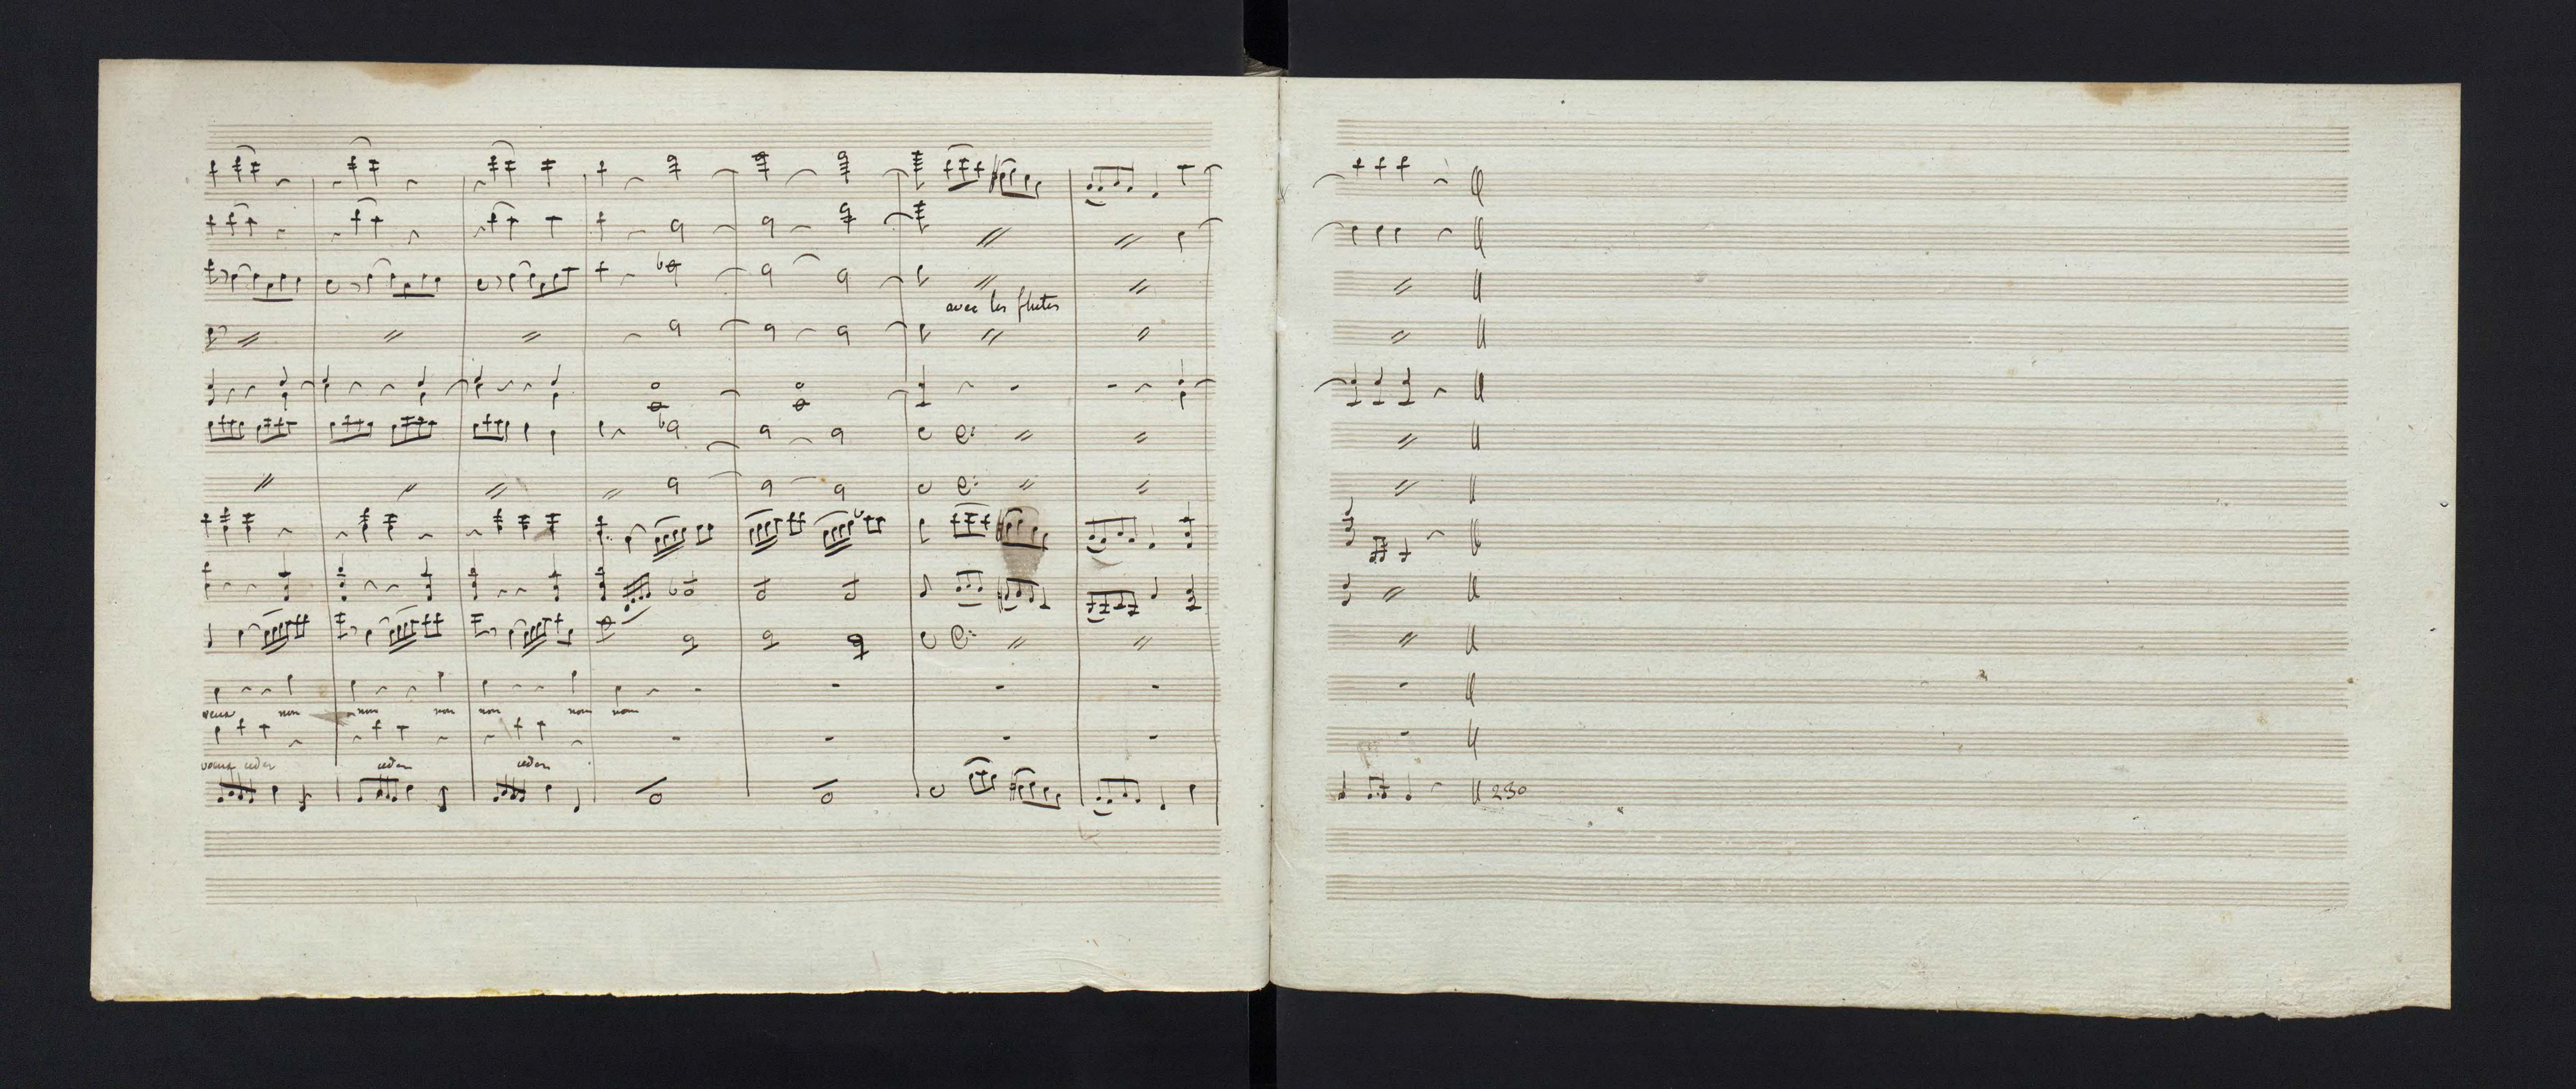 avec les flutes
veux non non non non non non
veux ceder ceder ceder
230